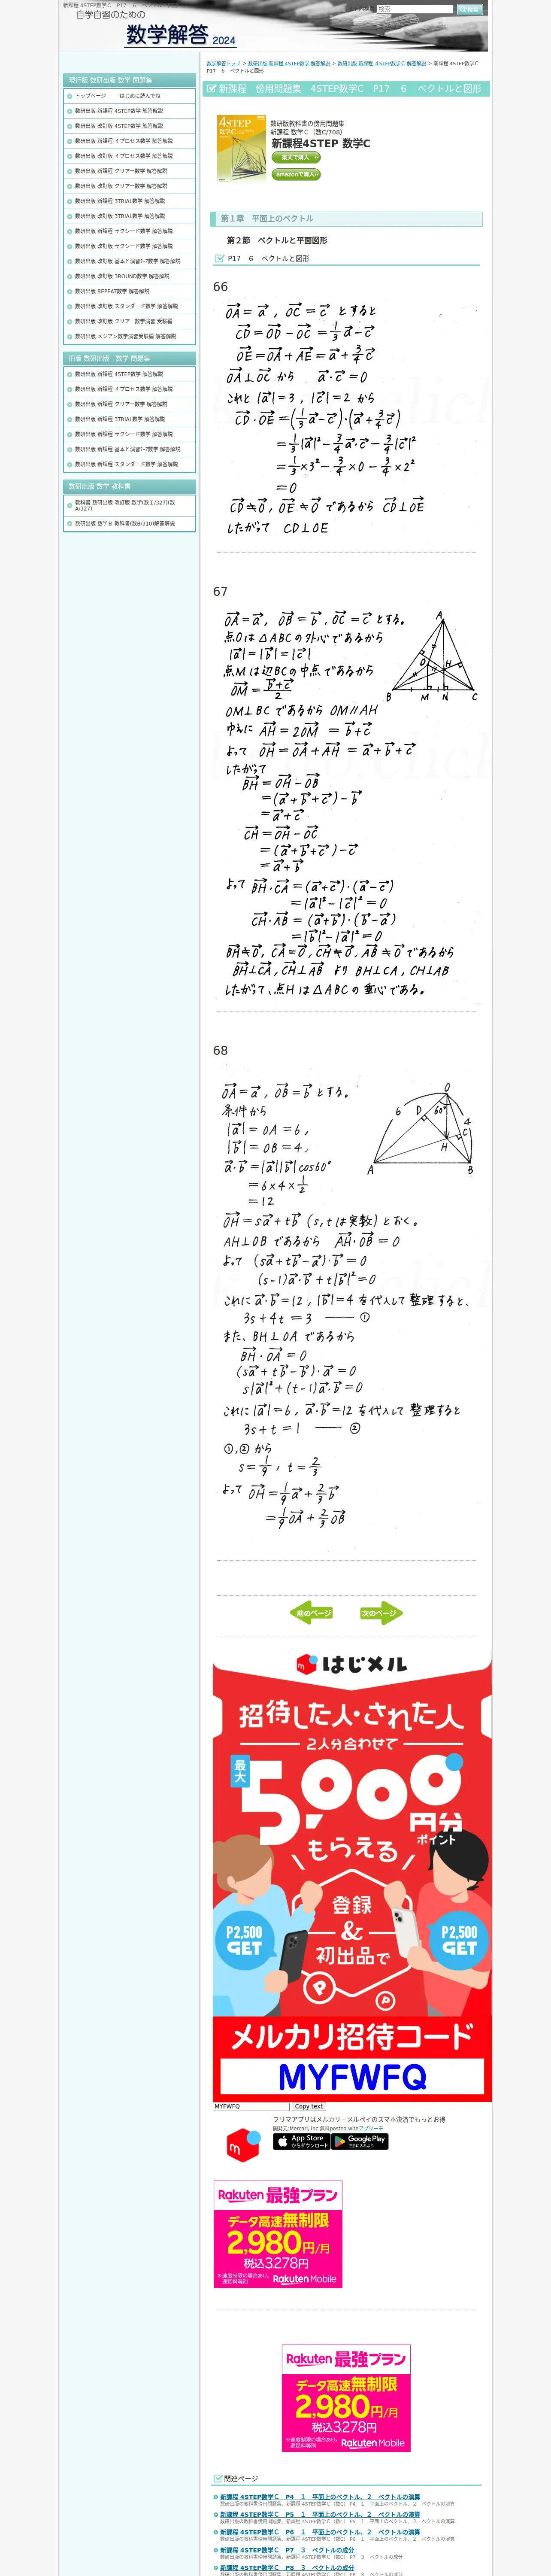 新課程 4STEP数学C P17 6 ベクトルと図形
自学自習のための
数学解答 2024
検索
検索
数学解答トップ > 数研出版 新課程 4STEP数学 解答解説 > 数研出版 新課程 4STEP数学C 解答解説 > 新課程 4STEP数学C
P17 6 ベクトルと図形
新課程 傍用問題集 4STEP数学C P17 6 ベクトルと図形
現行版 数研出版 数学 問題集
トップページ － はじめに読んでね －
数研出版 新課程 4STEP数学 解答解説
数研出版 改訂版 4STEP数学 解答解説
数研出版 新課程 4プロセス数学 解答解説
数研出版 改訂版 4プロセス数学 解答解説
数研出版 新課程 クリアー数学 解答解説
数研出版 改訂版 クリアー数学 解答解説
数研出版 新課程 3TRIAL数学 解答解説
数研出版 改訂版 3TRIAL数学 解答解説
数研出版 新課程 サクシード数学 解答解説
数研出版 改訂版 サクシード数学 解答解説
数研出版 改訂版 基本と演習ﾃｰﾏ数学 解答解説
数研出版 改訂版 3ROUND数学 解答解説
数研出版 REPEAT数学 解答解説
数研出版 改訂版 スタンダード数学 解答解説
数研出版 改訂版 クリアー数学演習 受験編
数研出版 メジアン数学演習受験編 解答解説
旧版 数研出版 数学 問題集
数研出版 新課程 4STEP数学 解答解説
数研出版 新課程 4プロセス数学 解答解説
数研出版 新課程 クリアー数学 解答解説
数研出版 新課程 3TRIAL数学 解答解説
数研出版 新課程 サクシード数学 解答解説
数研出版 新課程 基本と演習ﾃｰﾏ数学 解答解説
数研出版 新課程 スタンダード数学 解答解説
数研出版 数学 教科書
教科書 数研出版 改訂版 数学(数Ⅰ/327)(数
A/327)
数研出版 数学B 教科書(数B/310)解答解説
4STEP
数学C
数研版教科書の傍用問題集
新課程 数学C（数C/708）
新課程4STEP 数学C
楽天で購入
amazonで購入
第1章 平面上のベクトル
第2節 ベクトルと平面図形
P17 6 ベクトルと図形
66
OA→=a→, OC→=c→ とすると
CD→=OD→-OC→=1/3a→-c→
OE→=OA→+AE→=a→+3/4c→
OA⊥OC から a→・c→=0
これと |a→|=3, |c→|=2 から
CD→・OE→=(1/3a→-c→)・(a→+3/4c→)
=1/3|a→|²-3/4a→・c→-3/4|c→|²
=1/3×3²-3/4×0-3/4×2²
=0
CD→≠0→, OE→≠0→ であるから CD→⊥OE→
したがって CD⊥OE
67
OA→=a→, OB→=b→, OC→=c→ とする。
点Oは△ABCの外心であるから
|a→|=|b→|=|c→|
点Mは辺BCの中点であるから
OM→=(b→+c→)/2
OM⊥BC であるから OM∥AH
ゆえに AH→=2OM→=b→+c→
よって OH→=OA→+AH→=a→+b→+c→
したがって
BH→=OH→-OB→
=(a→+b→+c→)-b→
=a→+c→
CH→=OH→-OC→
=(a→+b→+c→)-c→
=a→+b→
よって BH→・CA→=(a→+c→)・(a→-c→)
=|a→|²-|c→|²=0
CH→・AB→=(a→+b→)・(b→-a→)
=|b→|²-|a→|²=0
BH→≠0→, CA→≠0→, CH→≠0→, AB→≠0→ であるから
BH→⊥CA→, CH→⊥AB→ より BH⊥CA, CH⊥AB
したがって、点Hは△ABCの垂心である。
A
O
H
B M N C
68
OA→=a→, OB→=b→ とする。
条件から
|a→|=OA=6,
|b→|=OB=4,
a→・b→=|a→||b→|cos60°
=6×4×1/2
=12
OH→=sa→+tb→ (s,tは実数)とおく。
AH⊥OB であるから AH→・OB→=0
よって (sa→+tb→-a→)・b→=0
(s-1)a→・b→+t|b→|²=0
これに a→・b→=12, |b→|=4 を代入して整理すると、
3s+4t=3 ―― ①
また、BH⊥OA であるから
BH→・OA→=0
(sa→+tb→-b→)・a→=0
s|a→|²+(t-1)a→・b→=0
これに |a→|=6, a→・b→=12 を代入して 整理すると
3s+t=1 ―― ②
①,② から
s=1/9, t=2/3
よって OH→=1/9a→+2/3b→
=1/9OA→+2/3OB→
O
6
D
60°
4
C
H
A
B
前のページ
次のページ
はじメル
招待した人・された人
2人分合わせて
最大
5,000円分
ポイント
もらえる
登録
&
初出品で
P2,500
GET
P2,500
GET
メルカリ招待コード
MYFWFQ
MYFWFQ
Copy text
フリマアプリはメルカリ - メルペイのスマホ決済でもっとお得
開発元:Mercari, Inc.無料posted withアプリーチ
App Store
からダウンロード
Google Play
で手に入れよう
Rakuten 最強プラン
データ高速無制限
2,980円/月
税込3,278円
※速度制限の場合あり。
通話料等別
Rakuten Mobile
Rakuten 最強プラン
データ高速無制限
2,980円/月
税込3,278円
※速度制限の場合あり。
通話料等別
Rakuten Mobile
関連ページ
新課程 4STEP数学C P4 1 平面上のベクトル、2 ベクトルの演算
数研出版の教科書傍用問題集、新課程 4STEP数学C（数C） P4 1 平面上のベクトル、2 ベクトルの演算
新課程 4STEP数学C P5 1 平面上のベクトル、2 ベクトルの演算
数研出版の教科書傍用問題集、新課程 4STEP数学C（数C） P5 1 平面上のベクトル、2 ベクトルの演算
新課程 4STEP数学C P6 1 平面上のベクトル、2 ベクトルの演算
数研出版の教科書傍用問題集、新課程 4STEP数学C（数C） P6 1 平面上のベクトル、2 ベクトルの演算
新課程 4STEP数学C P7 3 ベクトルの成分
数研出版の教科書傍用問題集、新課程 4STEP数学C（数C） P7 3 ベクトルの成分
新課程 4STEP数学C P8 3 ベクトルの成分